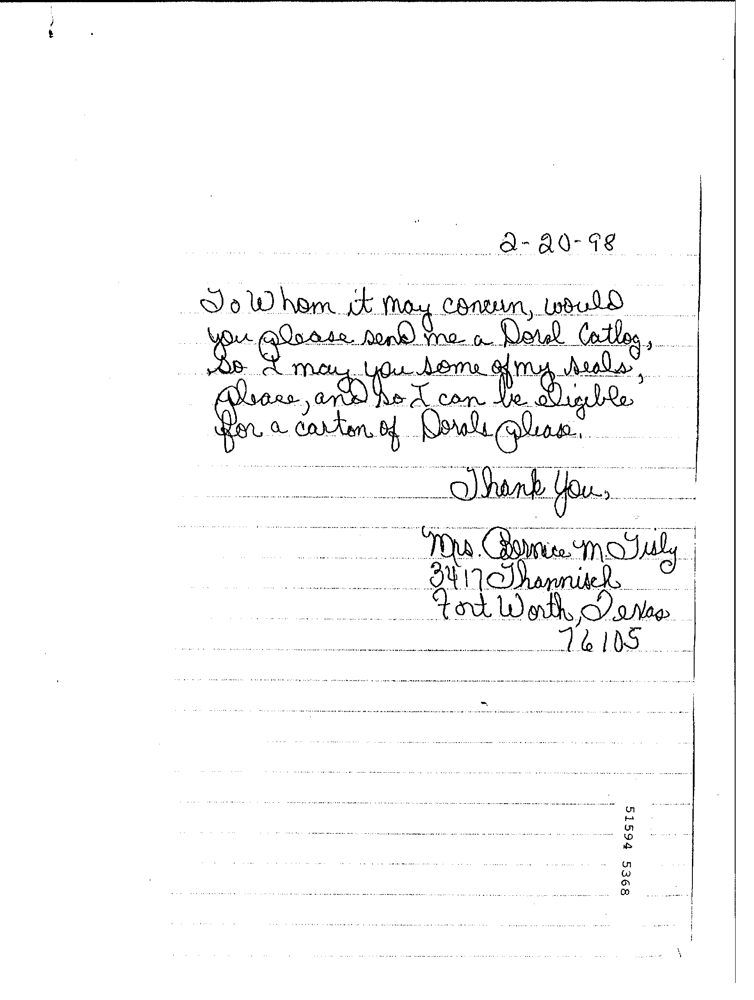 2-20-98
To Whom it may concern, would
you please send me a Doral Catlog,
so I may you some of my seals,
please, and so I can be eligible
for a carton of Dorals please.
Thank You,
Mrs. Bernice M. Tisly
3417 Thannisch
Fort Worth, Texas
76105
51594 5368